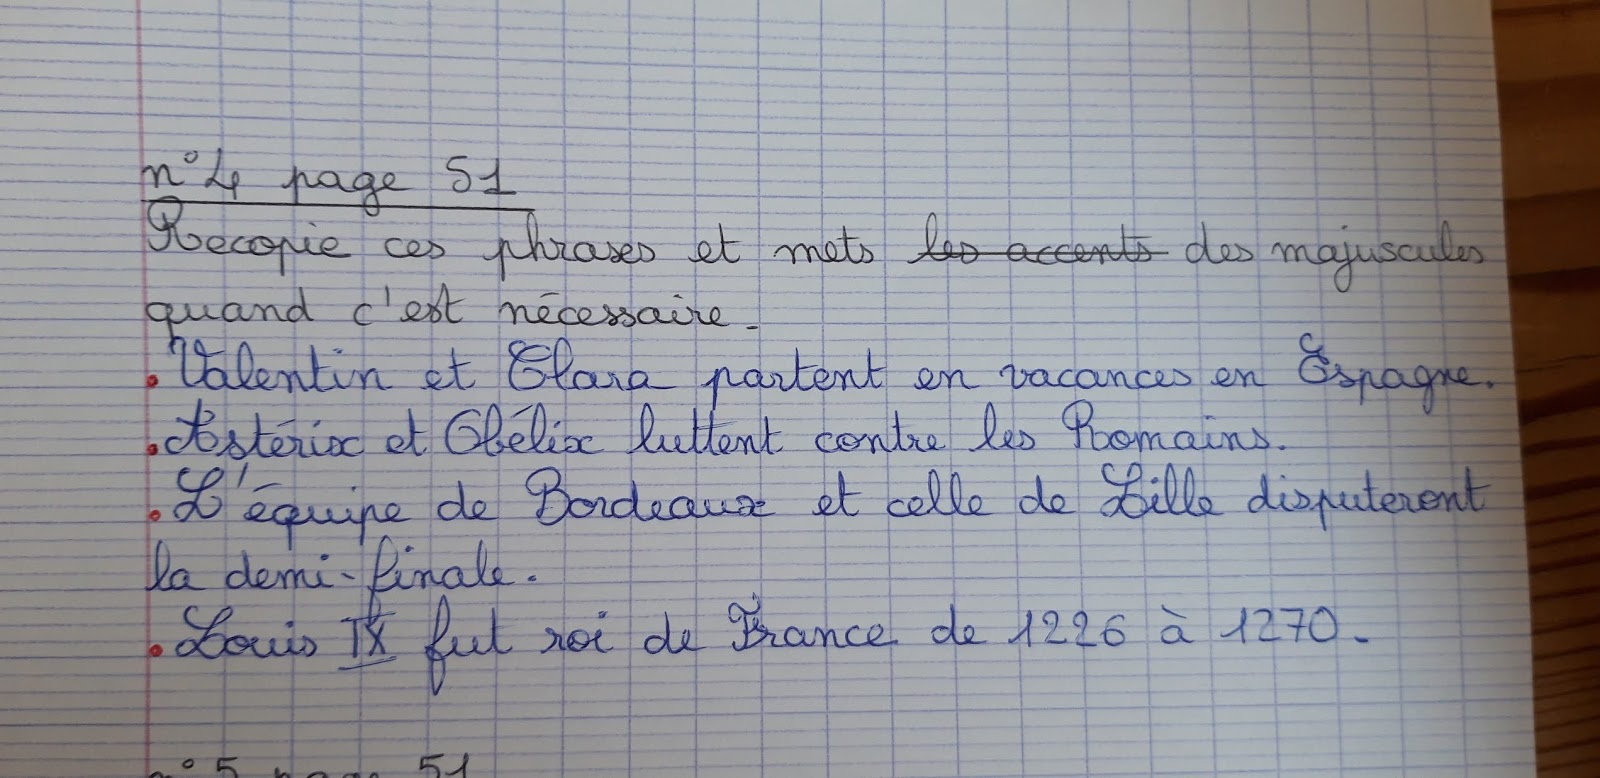 n° 4 page 51
Recopie ces phrases et mets les accents des majuscules
quand c'est nécessaire.
. Valentin et Clara partent en vacances en Espagne.
. Astérix et Obélix luttent contre les Romains.
. L'équipe de Bordeaux et celle de Lille disputeront
la demi-finale.
. Louis IX fut roi de France de 1226 à 1270.
n° 5 page 51